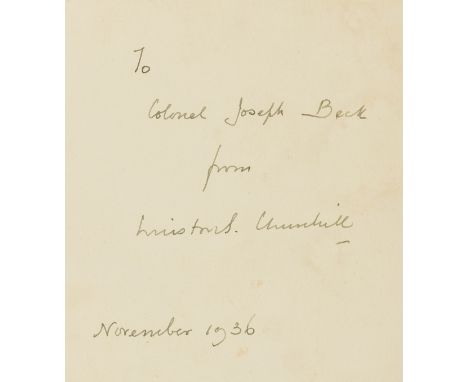 To
Colonel Joseph Beck
from
Winston S. Churchill
November 1936